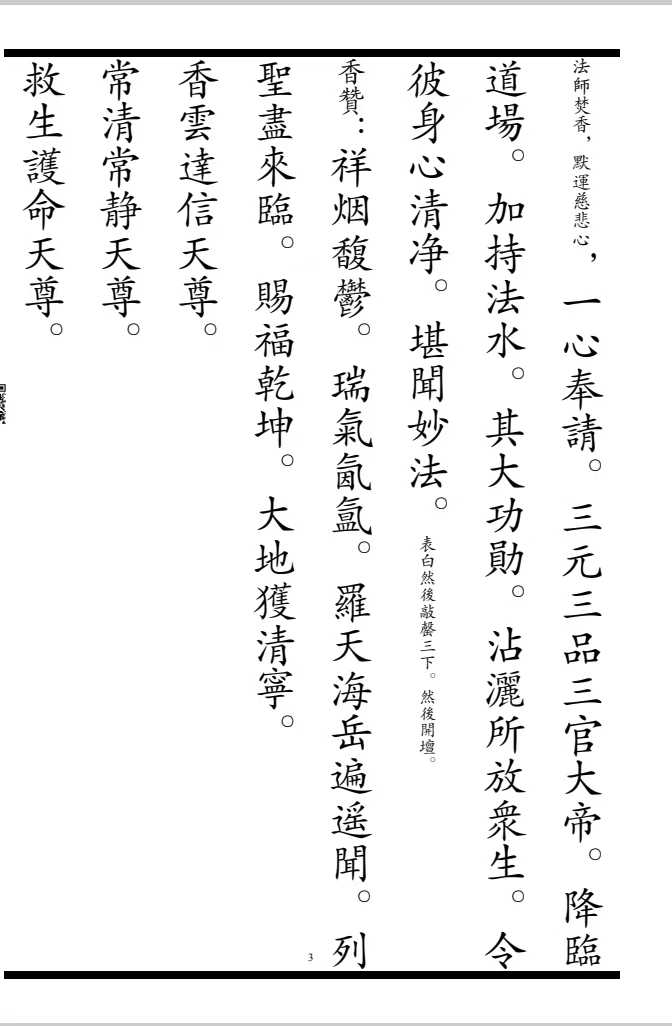 法師焚香，默運慈悲心，一心奉請。三元三品三官大帝。降臨
道場。加持法水。其大功勛。沾灑所放衆生。令
彼身心清净。堪聞妙法。表白然後敲磬三下。然後開壇。
香贊：祥烟馥鬱。瑞氣氤氲。羅天海岳遍遥聞。列
聖盡來臨。賜福乾坤。大地獲清寧。
香雲達信天尊。
常清常静天尊。
救生護命天尊。
3